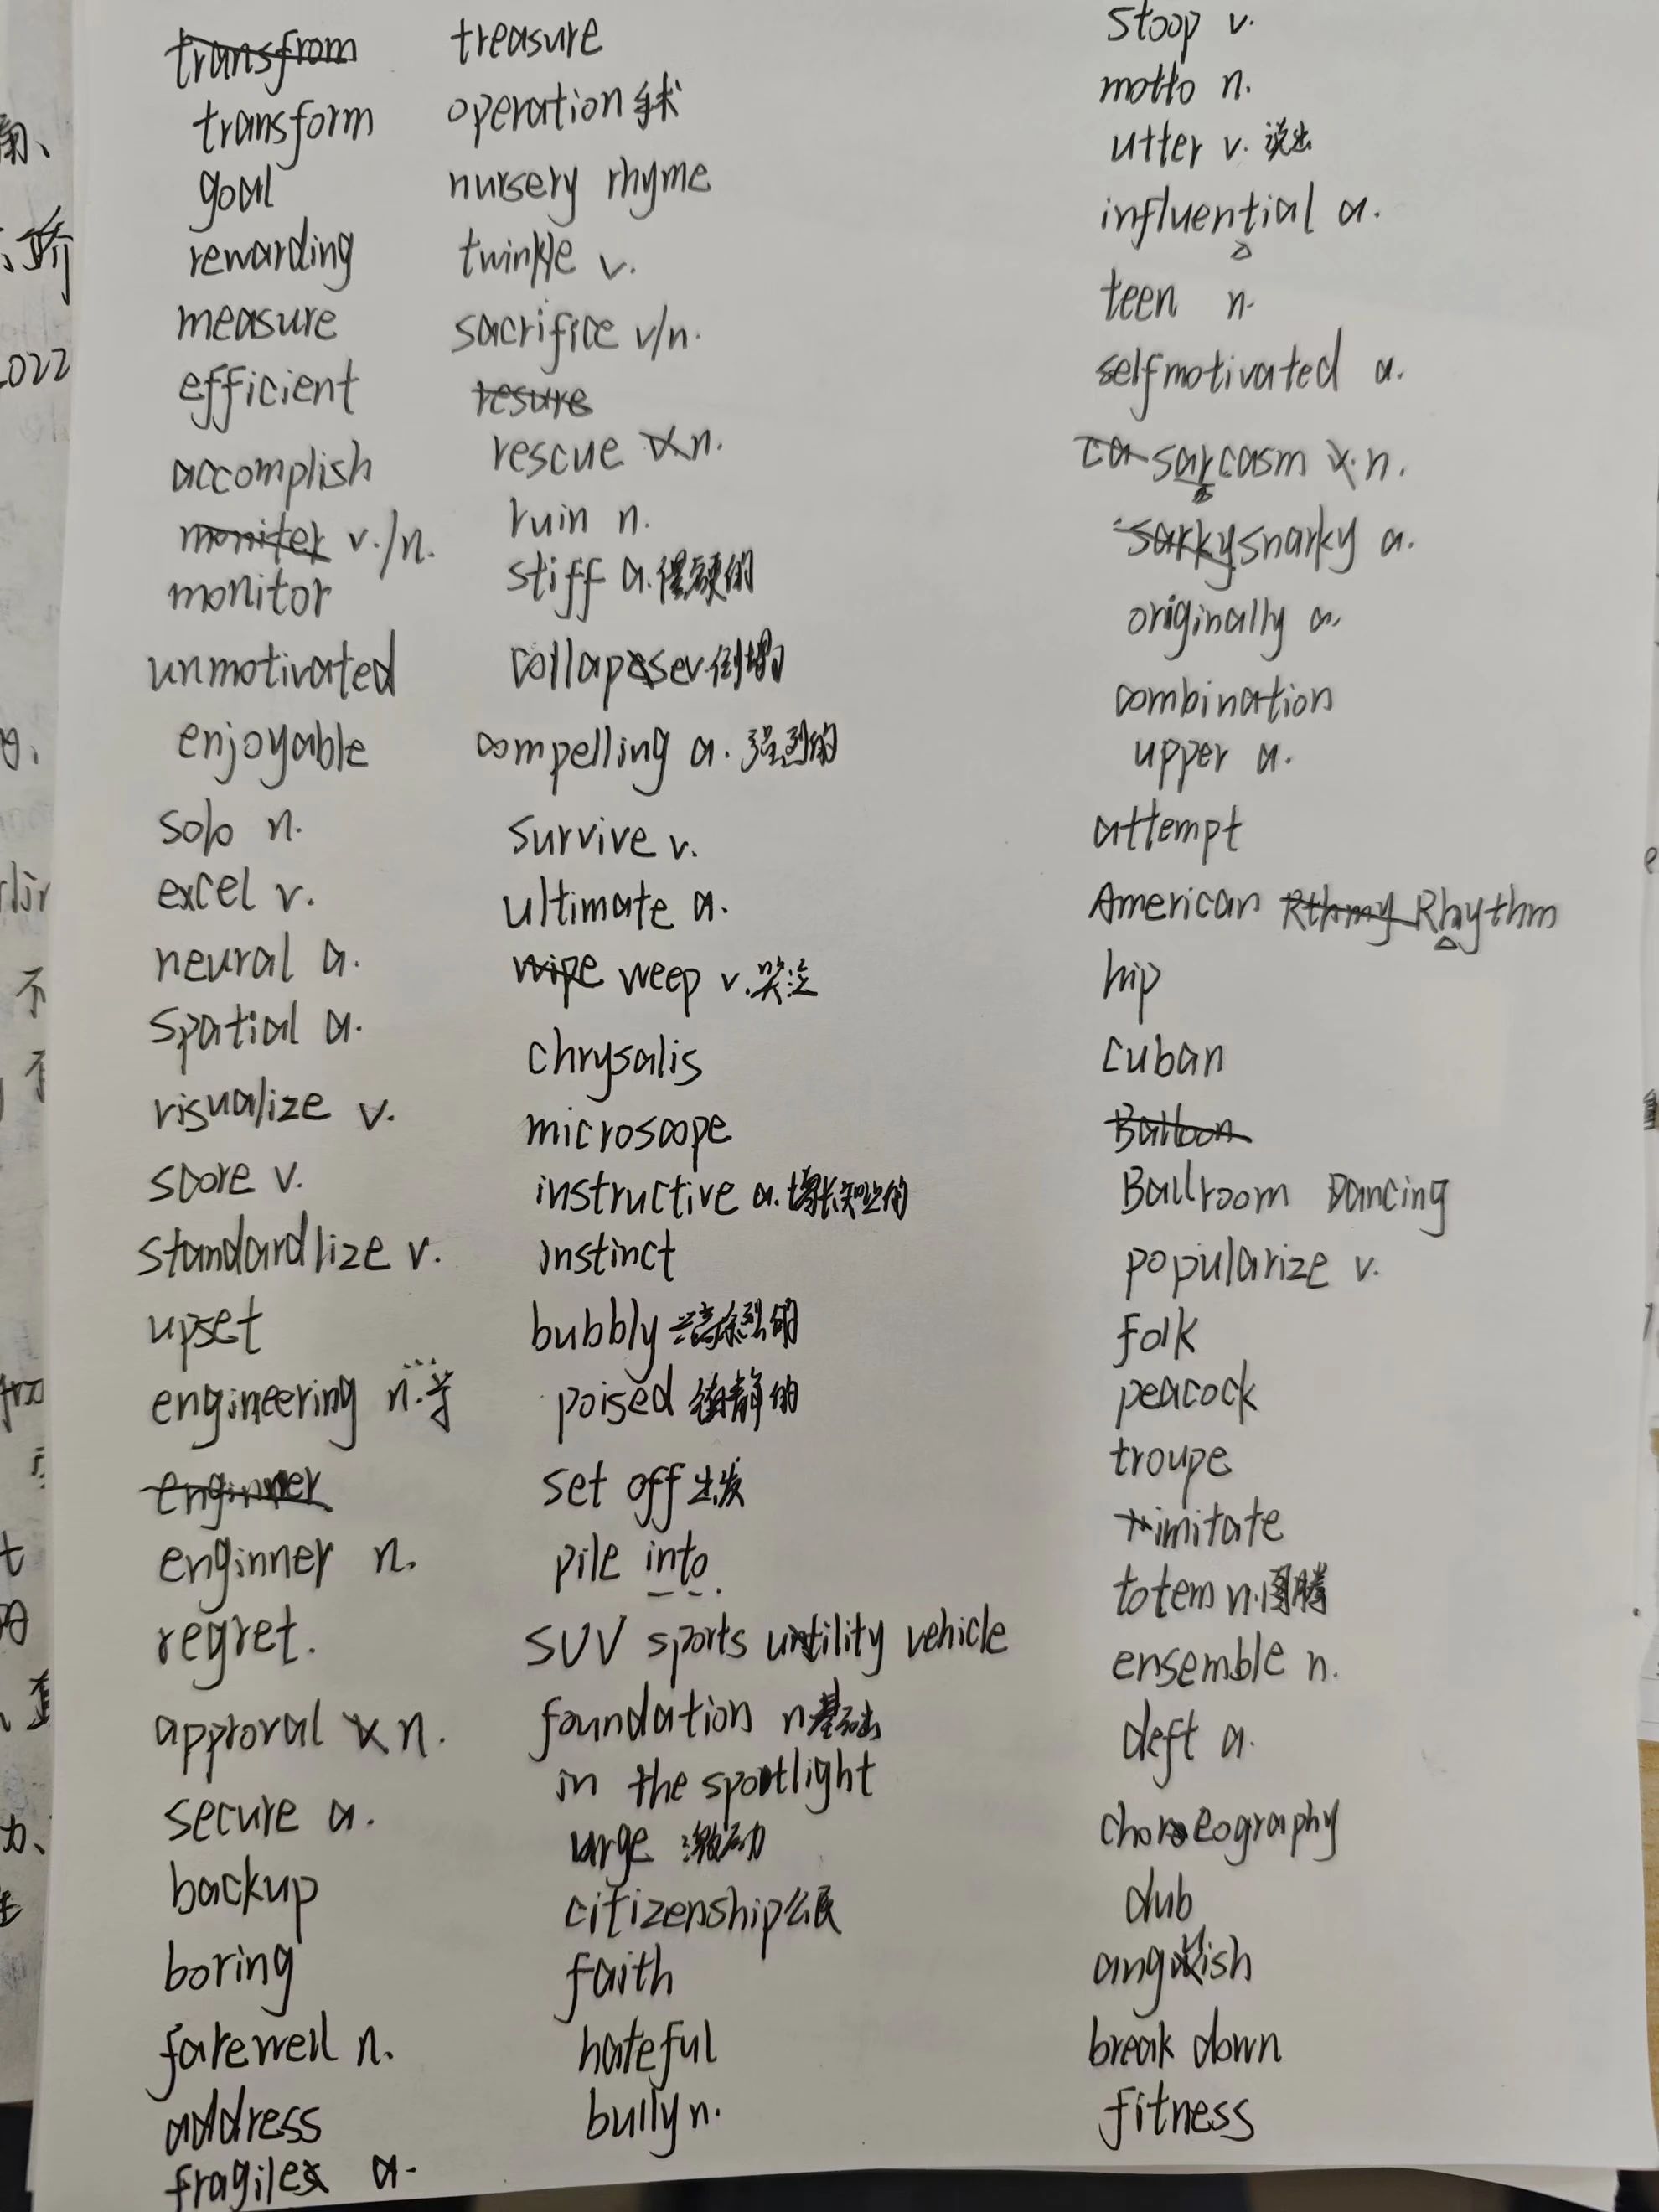 transfrom
transform
goal
rewarding
measure
efficient
accomplish
moniter v./n.
monitor
unmotivated
enjoyable
solo n.
excel v.
neural a.
spatial a.
visualize v.
score v.
standardlize v.
upset
engineering n.学
enginner
enginner n.
regret.
approval n.
secure a.
backup
boring
farewell n.
address
fragile a.
treasure
operation 手术
nursery rhyme
twinkle v.
sacrifice v/n.
resure
rescue v n.
ruin n.
stiff a. 僵硬的
collapse v. 倒塌的
compelling a. 强烈的
survive v.
ultimate a.
wipe weep v. 哭泣
chrysalis
microscope
instructive a. 增长知识的
instinct
bubbly 的
poised 静的
set off 出发
pile into
SUV sports untility vehicle
foundation n 基础
in the spotlight
urge 激励
citizenship 公民
faith
hateful
bully n.
stoop v.
motto n.
utter v. 说出
influential a.
teen n.
selfmotivated a.
ca sarcasm n.
sarky snarky a.
originally a.
combination
upper a.
attempt
American Rthmy Rhythm
hip
Cuban
Balloon
Ballroom Dancing
popularize v.
folk
peacock
troupe
imitate
totem n. 图腾
ensemble n.
deft a.
choreography
dub
anguish
break down
fitness